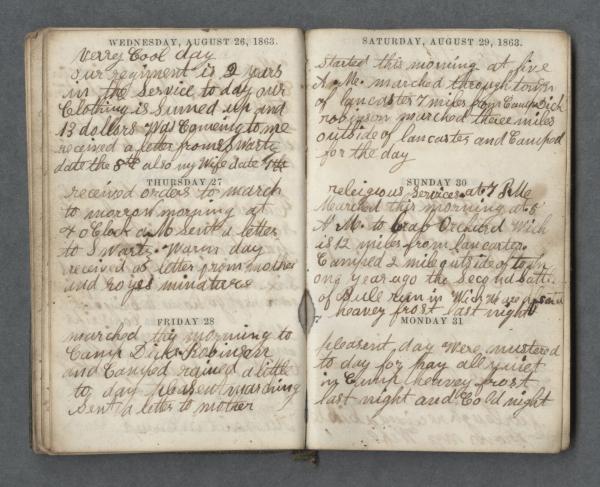 WEDNESDAY, AUGUST 26, 1863.
Verry Cool day
our regiment is 2 years
in the Service to day our
Clothing is Sumed up and
13 dollars Was Comeing to me
received a letter from S Wartz
date the 8th also my Wife date
THURSDAY 27
received orders to march
to morrow morning at
4 oClock a M Sent a letter
to S Wartz. Warm day
received a letter from mother
and
FRIDAY 28
marched this morning to
Camp Dick Robinson
and Camped rained a little
to day pleasent marching
Sent a letter to mother
SATURDAY, AUGUST 29, 1863.
Started this morning at five
A. M. marched through town
of lancaster 7 miles from Camp Dick
robinson marched three miles
outside of lancaster and Camped
for the day
SUNDAY 30
releigious Services at 7 P. Me
Marched this morning at 5
A M. to Crab Orchard Wich
is 12 miles from lancaster.
Camped 2 mile outside of town
one year ago the Second Battle
of Bull run in Wich We
heavey frost last night
MONDAY 31
pleasent day Were mustered
to day for pay all quiet
in Camp heavey frost
last night and Cold night